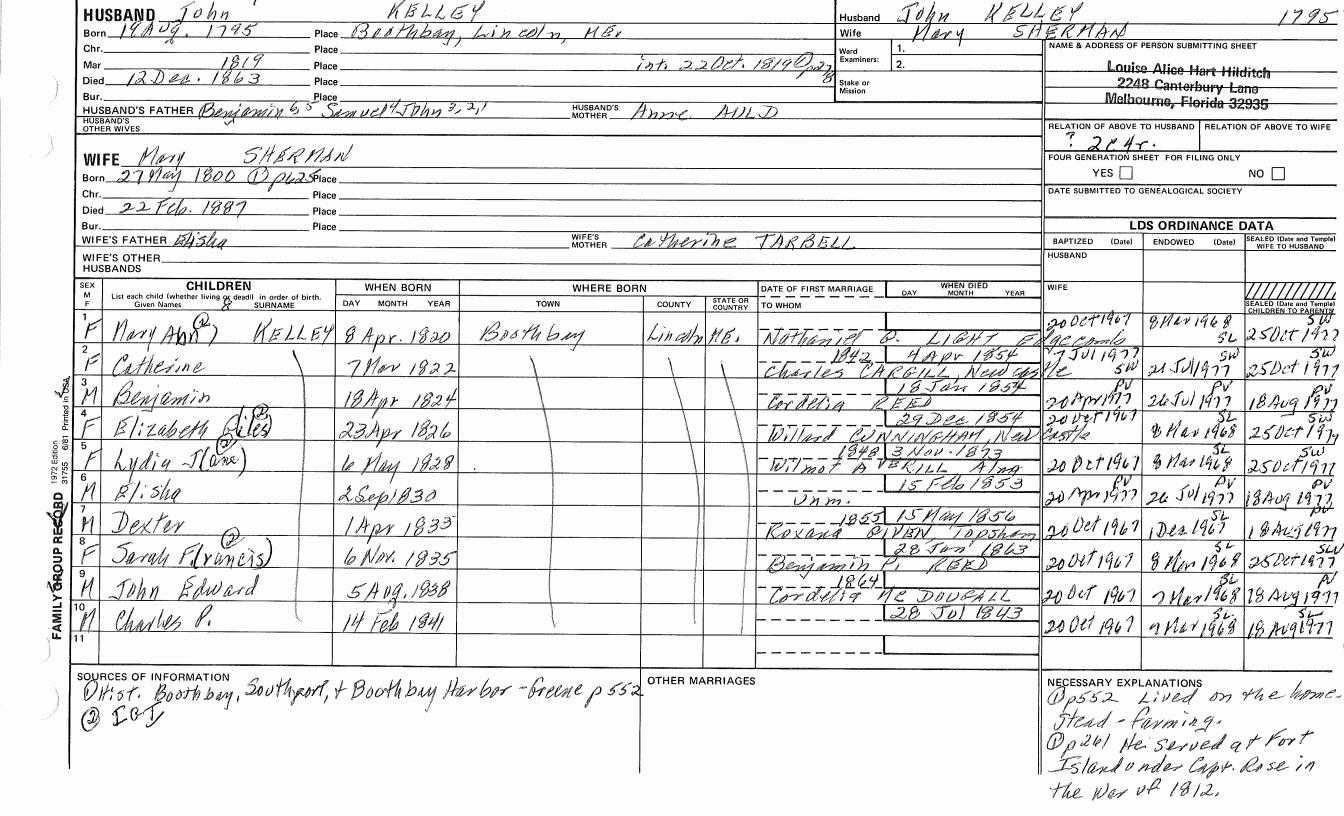 HUSBAND John KELLEY
Born 19 Aug. 1795 Place Boothbay, Lincoln, ME.
Chr. Place
Mar 1819 Place int. 22 Oct. 1819
Died 12 Dec. 1863 Place
Bur. Place
HUSBAND'S FATHER Benjamin 6, 5 Samuel 4 John 3, 2, 1 HUSBAND'S MOTHER Anne AULD
HUSBAND'S OTHER WIVES
WIFE Mary SHERMAN
Born 27 May 1800 ① p625 Place
Chr. Place
Died 22 Feb. 1887 Place
Bur. Place
WIFE'S FATHER Elisha WIFE'S MOTHER Catherine TARBELL
WIFE'S OTHER HUSBANDS
Husband John KELLEY 1795
Wife Mary SHERMAN
Ward Examiners: 1.
2.
Stake or Mission
NAME & ADDRESS OF PERSON SUBMITTING SHEET
Louise Alice Hart Hilditch
2248 Canterbury Lane
Melbourne, Florida 32935
RELATION OF ABOVE TO HUSBAND RELATION OF ABOVE TO WIFE
? 2c4r.
FOUR GENERATION SHEET FOR FILING ONLY
YES NO
DATE SUBMITTED TO GENEALOGICAL SOCIETY
LDS ORDINANCE DATA
BAPTIZED (Date) ENDOWED (Date) SEALED (Date and Temple) WIFE TO HUSBAND
HUSBAND
WIFE
SEALED (Date and Temple) CHILDREN TO PARENTS
SEX M F CHILDREN WHEN BORN WHERE BORN DATE OF FIRST MARRIAGE WHEN DIED
List each child (whether living or dead) in order of birth.
Given Names SURNAME DAY MONTH YEAR TOWN COUNTY STATE OR COUNTRY TO WHOM DAY MONTH YEAR
1 F Mary Ann ② KELLEY 8 Apr. 1820 Boothbay Lincoln ME. Nathaniel O. LIGHT Edgecomb 20 Oct 1967 8 Mar 1968 SL 25 Oct 1977 SW
2 F Catherine 7 Mar 1822 1842 4 Apr 1854 Charles CARGILL, Newcastle 7 Jul 1977 SW 21 Jul 1977 SW 25 Oct 1977 SW
3 M Benjamin 18 Apr 1824 18 Jan 1854 Cordelia REED 20 Apr 1977 26 Jul 1977 PV 18 Aug 1977 PV
4 F Elizabeth Giles ② 23 Apr 1826 29 Dec 1854 Willard CUNNINGHAM, Newcastle 20 Oct 1967 8 Mar 1968 SL 25 Oct 1977 SW
5 F Lydia J(ane) ② 6 May 1828 1848 3 Nov. 1873 Wilmot AVERILL Alna 20 Oct 1967 8 Mar 1968 SL 25 Oct 1977 SW
6 M Elisha 2 Sep 1830 15 Feb 1853 Unm. 20 Apr 1977 26 Jul 1977 PV 18 Aug 1977 PV
7 M Dexter 1 Apr 1833 1855 15 May 1856 Roxana GIVEN, Topsham 20 Oct 1967 1 Dec 1967 SL 18 Aug 1977 PV
8 F Sarah F(rancis) ② 6 Nov. 1835 28 Jan 1863 Benjamin P. REED 20 Oct 1967 8 Mar 1968 SL 25 Oct 1977 SLW
9 M John Edward 5 Aug. 1838 1864 Cordelia McDOUGALL 20 Oct 1967 7 Mar 1968 SL 18 Aug 1977 PV
10 M Charles P. 14 Feb 1841 28 Jul 1843 20 Oct 1967 9 Mar 1968 SL 18 Aug 1977 SL
11
SOURCES OF INFORMATION
① Hist. Boothbay, Southport, + Boothbay Harbor - Greene p 552
② IGI
OTHER MARRIAGES
NECESSARY EXPLANATIONS
① p552 Lived on the home-
stead - farming.
① p261 He served at Fort
Island under Capt. Rose in
the War of 1812.
FAMILY GROUP RECORD
1972 Edition
31755 6/81 Printed in USA